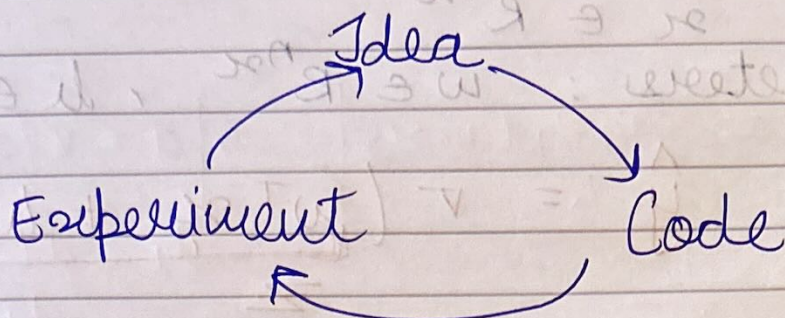 Idea
Experiment Code